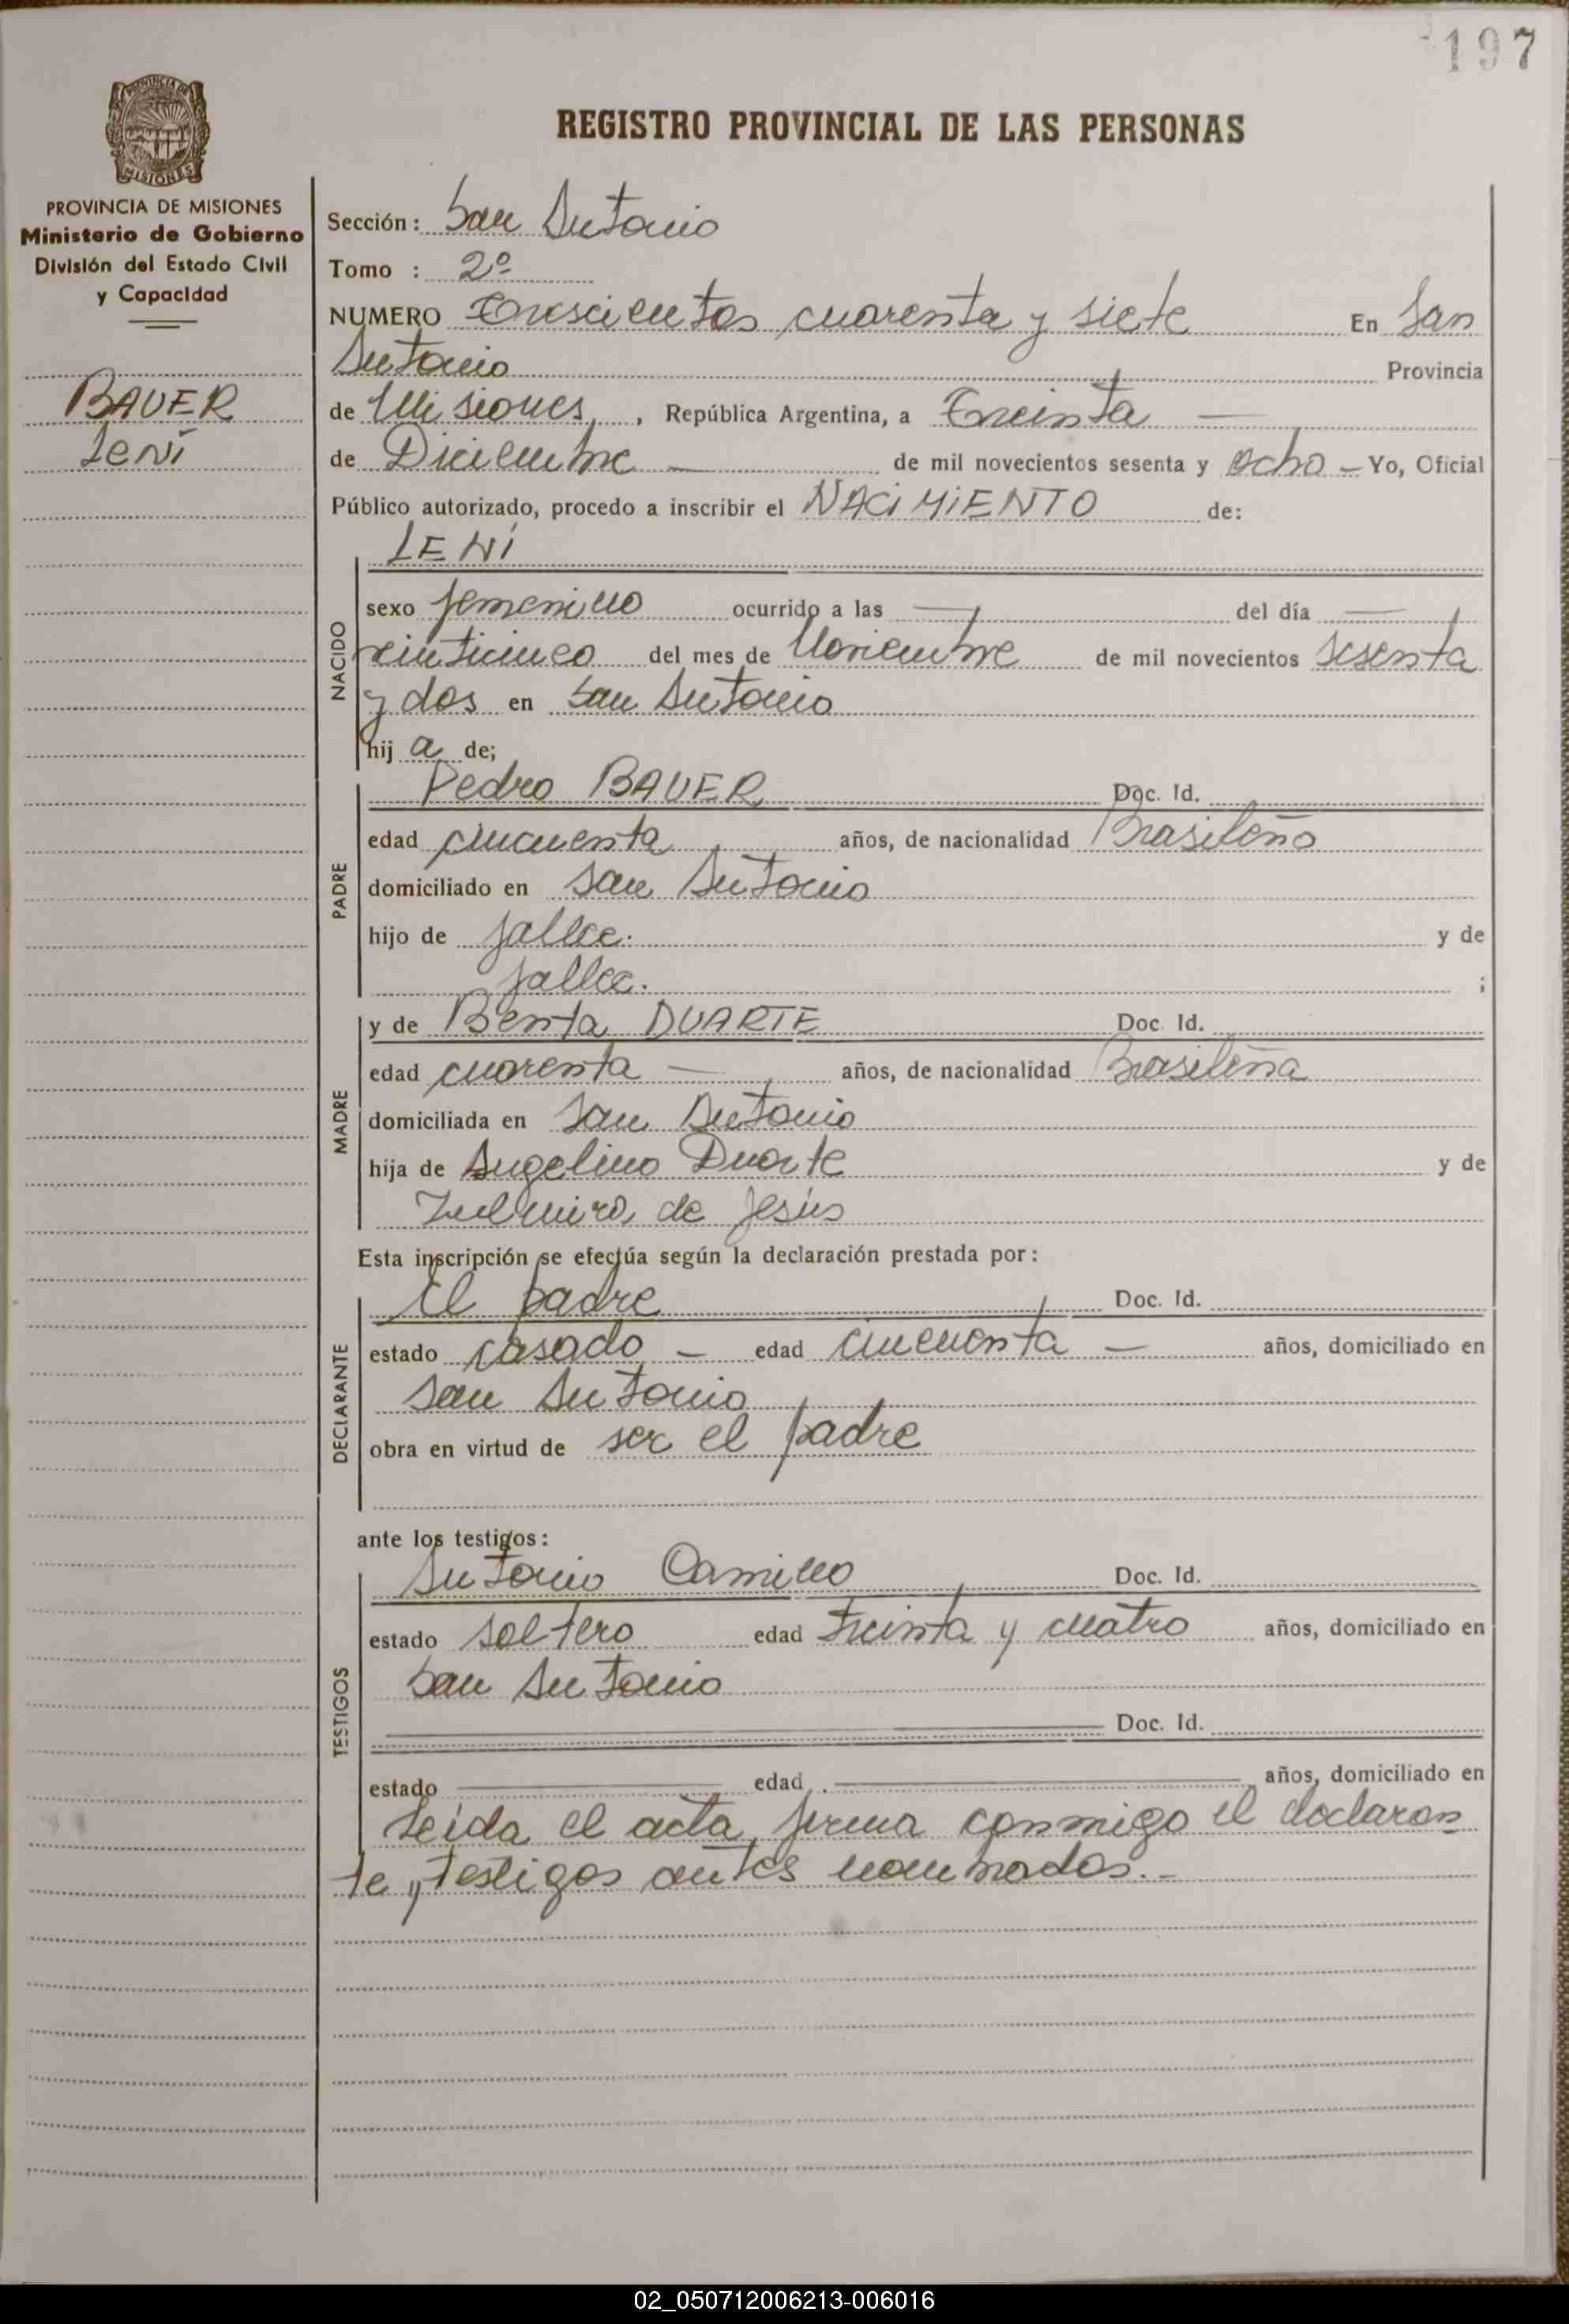 197
MISIONES
REGISTRO PROVINCIAL DE LAS PERSONAS
PROVINCIA DE MISIONES
Ministerio de Gobierno
División del Estado Civil
y Capacidad
BAUER
Lení
Sección: San Antonio
Tomo : 2º
NUMERO Trescientos cuarenta y siete En San
Antonio Provincia
de Misiones, República Argentina, a Treinta
de Diciembre de mil novecientos sesenta y ocho Yo, Oficial
Público autorizado, procedo a inscribir el NACIMIENTO de:
LENÍ
NACIDO
sexo femenino ocurrido a las del día
veinticinco del mes de Noviembre de mil novecientos sesenta
y dos en San Antonio
hij a de;
PADRE
Pedro BAUER Doc. Id.
edad cincuenta años, de nacionalidad Brasileño
domiciliado en San Antonio
hijo de fallec. y de
fallec. ;
MADRE
y de Benta DUARTE Doc. Id.
edad cuarenta años, de nacionalidad Brasileña
domiciliada en San Antonio
hija de Angelino Duarte y de
de Jesús
Esta inscripción se efectúa según la declaración prestada por:
DECLARANTE
El padre Doc. Id.
estado casado edad cincuenta años, domiciliado en
San Antonio
obra en virtud de ser el padre
ante los testigos:
TESTIGOS
Antonio Camilo Doc. Id.
estado soltero edad treinta y cuatro años, domiciliado en
San Antonio
Doc. Id.
estado edad años, domiciliado en
Leída el acta, firma conmigo el declaran
te y testigos antes nombrados.-
02_050712006213-006016